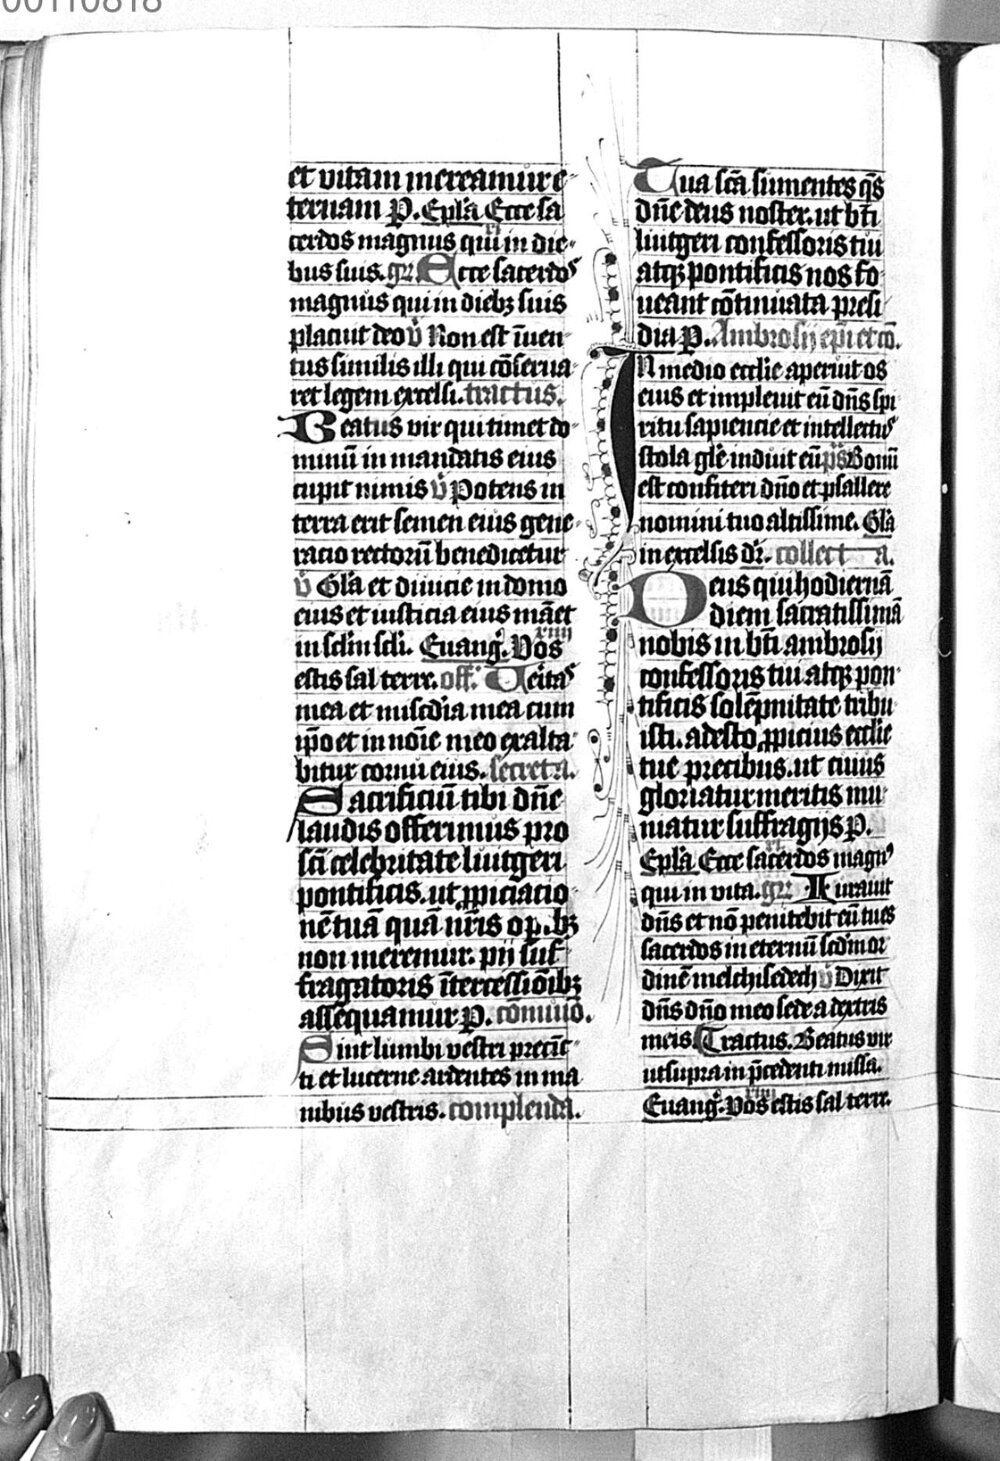 00110818
et vitam mereamur e-
ternam P. Epl̄a Ecce sa
cerdos magnus qui in die-
bus suis. gr̄. Ecce sacerdoꝰ
magnus qui in diebꝫ suis
placuit deo v̄ Non est īuen-
tus similis illi qui cōserua-
ret legem excelsi. tractus.
Beatus vir qui timet do-
minū in mandatis eius
cupit nimis v̄ Potens in
terra erit semen eius gene-
racio rectorū benedicetur
v̄ Gl̄a et diuicie in domo
eius et iusticia eius māet
in sclm̄ scli. Euangͦ. Vos
estis sal terre. off. Ueritaꝰ
mea et mis̄cdia mea cum
ip̄o et in no͞ie meo exalta-
bitur cornu eius. secreta.
Sacrificiū tibi dn̄e
laudis offerimus pro
sc̄i celebritate liutgeri
pontificis. ut ꝓpiciatio-
nē tuā quā nr̄is op̄.bꝫ
non meremur. pii suf-
fragatoris ītercessio͞ibꝫ
assequamur P. cōmuīo.
Sint lumbi vestri precīc-
ti et lucerne ardentes in ma
nibus vestris. complenda.
Tua sc̄a sumentes q̄s
dn̄e deus noster. ut bt̄i
liutgeri confessoris tui
atqꝫ pontificis nos fo-
ueant cōtinuata presi
dia P. Ambrosij ep̄i et cō.
IN medio eccl̄ie aperuit os
eius et impleuit eū dn̄s spi
ritu sapiencie et intellectuꝰ
stola gl̄e induit eū p̄s Bonū
est confiteri dn̄o et psallere
nomini tuo altissime. Gl̄a
in excelsis dr̄. collecta.
Deus qui hodiernā
diem sacratissimā
nobis in bt̄i ambrosij
confessoris tui atqꝫ pon-
tificis solēpnitate tribu
isti. adesto ꝓpicius eccl̄ie
tue precibus. ut cuius
gloriatur meritis mu-
niatur suffragijs P.
Epl̄a Ecce sacerdos magnꝰ
qui in vita. gr̄. Iurauit
dn̄s et nō penitebit eū tu es
sacerdos in eternū scd̄m or
dinē melchisedech v̄ Dixit
dn̄s dn̄o meo sede a dextris
meis. Tractus. Beatus vir
ut supra in p̄cedenti missa.
Euangͦ. Vos estis sal terre.